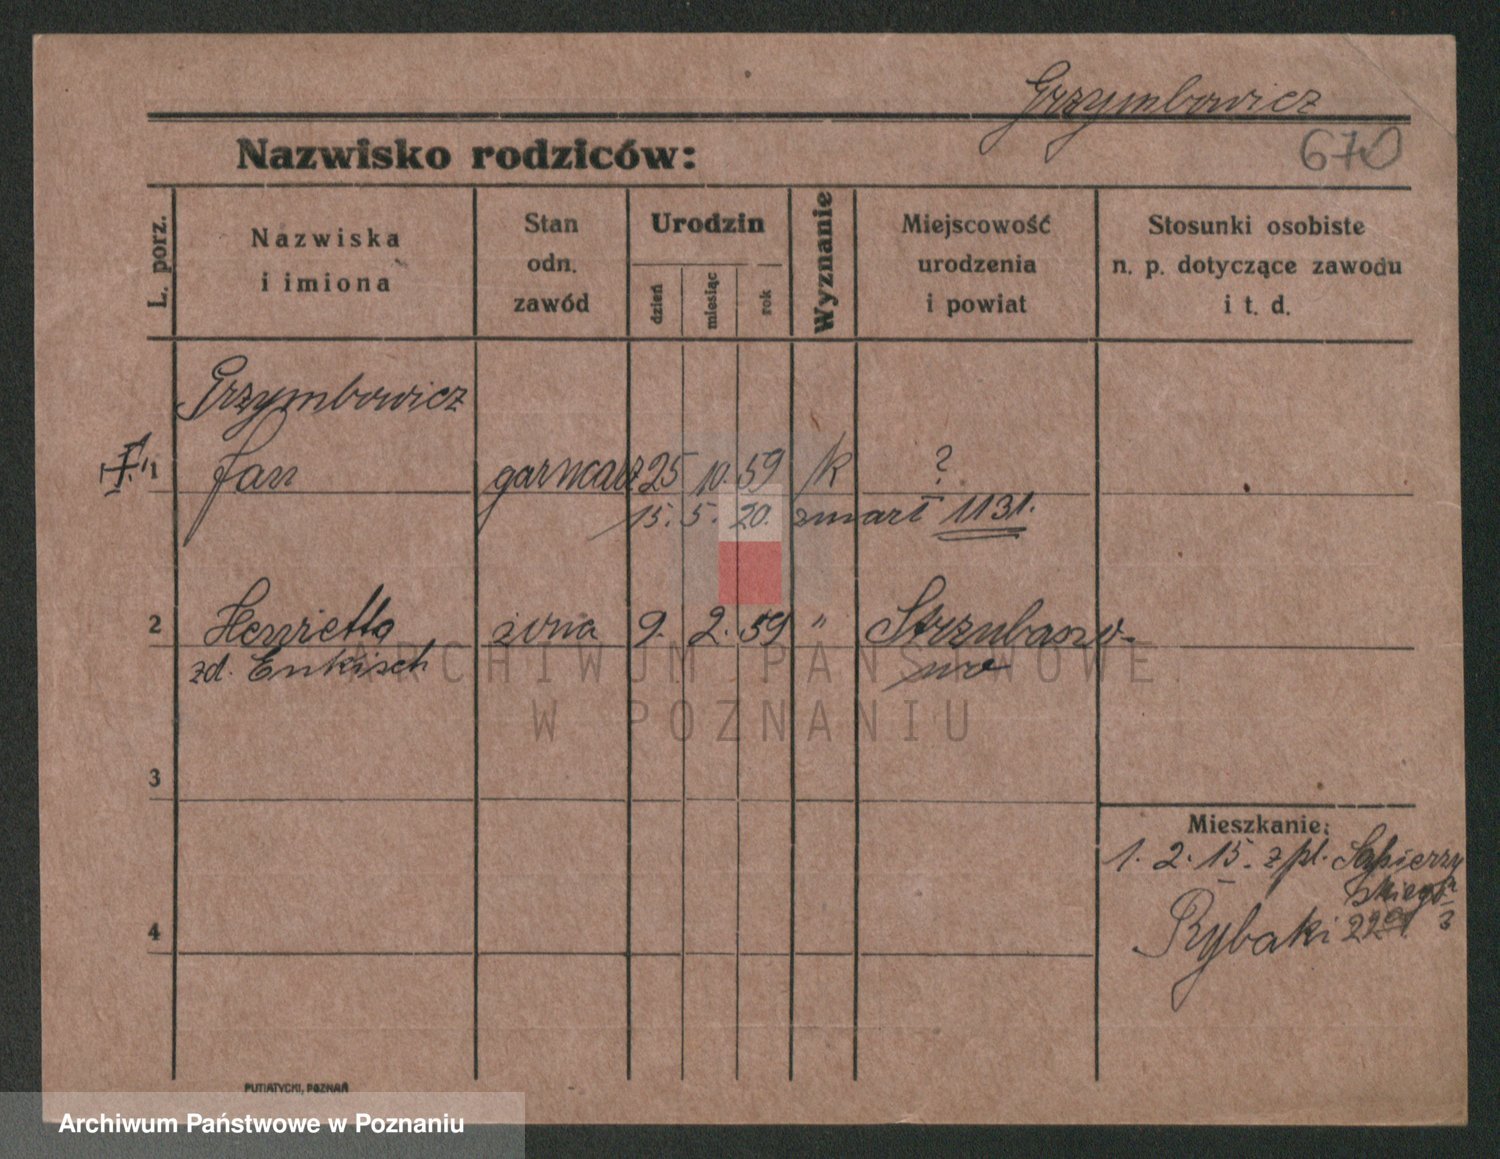 Grzymbowicz
670
Nazwisko rodziców:
L. porz.
Nazwiska
i imiona
Stan
odn.
zawód
Urodzin
dzień
miesiąc
rok
Wyznanie
Miejscowość
urodzenia
i powiat
Stosunki osobiste
n. p. dotyczące zawodu
i t. d.
Grzymbowicz
1 Jan garncarz 25 10. 59 /k ?
15. 5. 20. zmarł 1131.
2 Henrietta żona 9. 2. 59 "
zd. Enkisch
3
4
Mieszkanie:
1. 2. 15. z pl. Sapierzy
skiego
Rybaki
PUTIATYCKI, POZNAŃ
ARCHIWUM PAŃSTWOWE
W POZNANIU
Archiwum Państwowe w Poznaniu